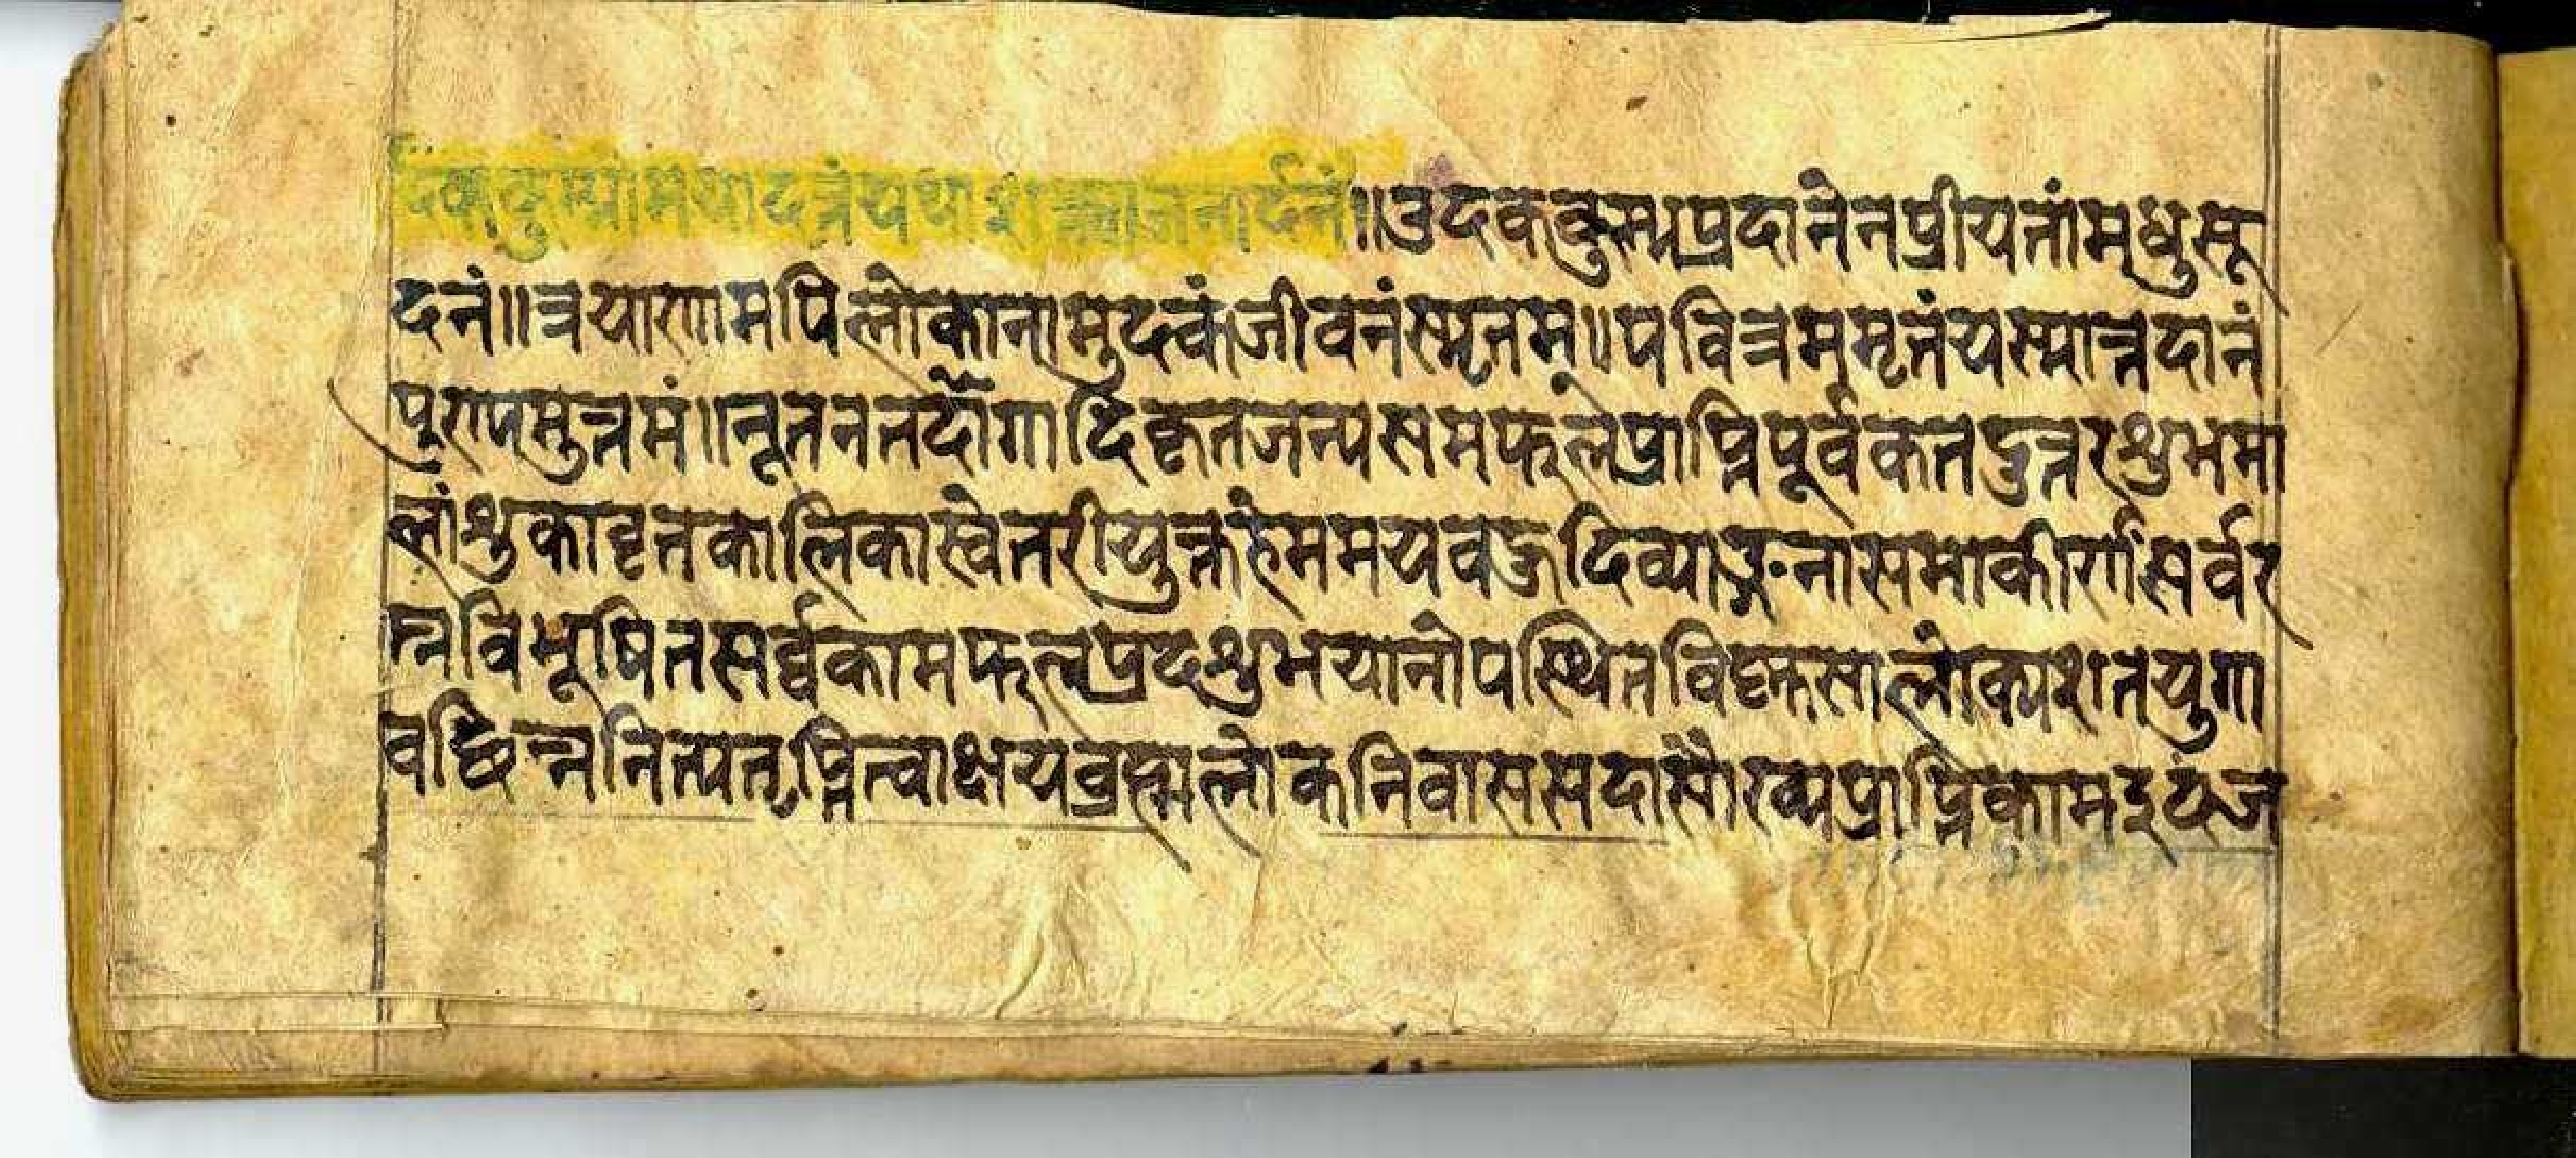 दककुम्भोमयादत्तंयथाशक्त्याजनार्दनं॥उदककुम्भप्रदानेनप्रीयतांमधुसू
दनं॥त्रयाणामपिलोकानामुदकंजीवनंस्मृतम्॥पवित्रममृतंयस्मात्तदानं
पुण्यमुत्तमं॥नूतनतर्दांगादिकृतजन्यसमफलप्राप्तिपूर्वकतदुत्तरशुभमा
लांशुकावृतकालिकास्वेतरीयुक्तहेममयवज्रदिव्याङ्गनासमाकीर्णसर्वर
त्नविभूषितसर्व्वकामफलप्रदशुभयानोपस्थितविष्णुसालोक्यशतयुगा
वछिन्ननित्यतृप्तित्वाक्षयब्रह्मलोकनिवाससदासौख्यप्राप्तिकामइदंज